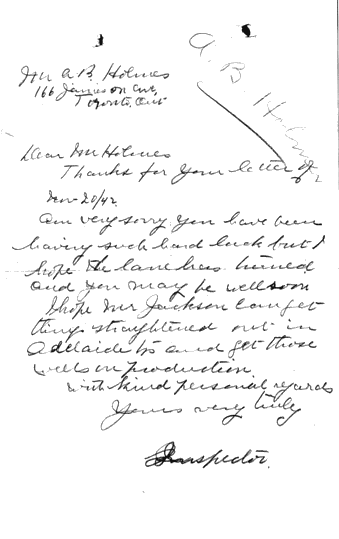 A. B. Holmes
Mr A. B. Holmes
166 Jameson Ave,
Toronto, Ont
Dear Mr Holmes
Thanks for your letter of
Nov 20/42
Am very sorry you have been
having such hard luck but I
hope the lane has turned
and you may be well soon
I hope Mr Jackson can get
things straightened out in
Adelaide Tp and get those
wells in production
With kind personal regards
Yours very truly
Inspector.